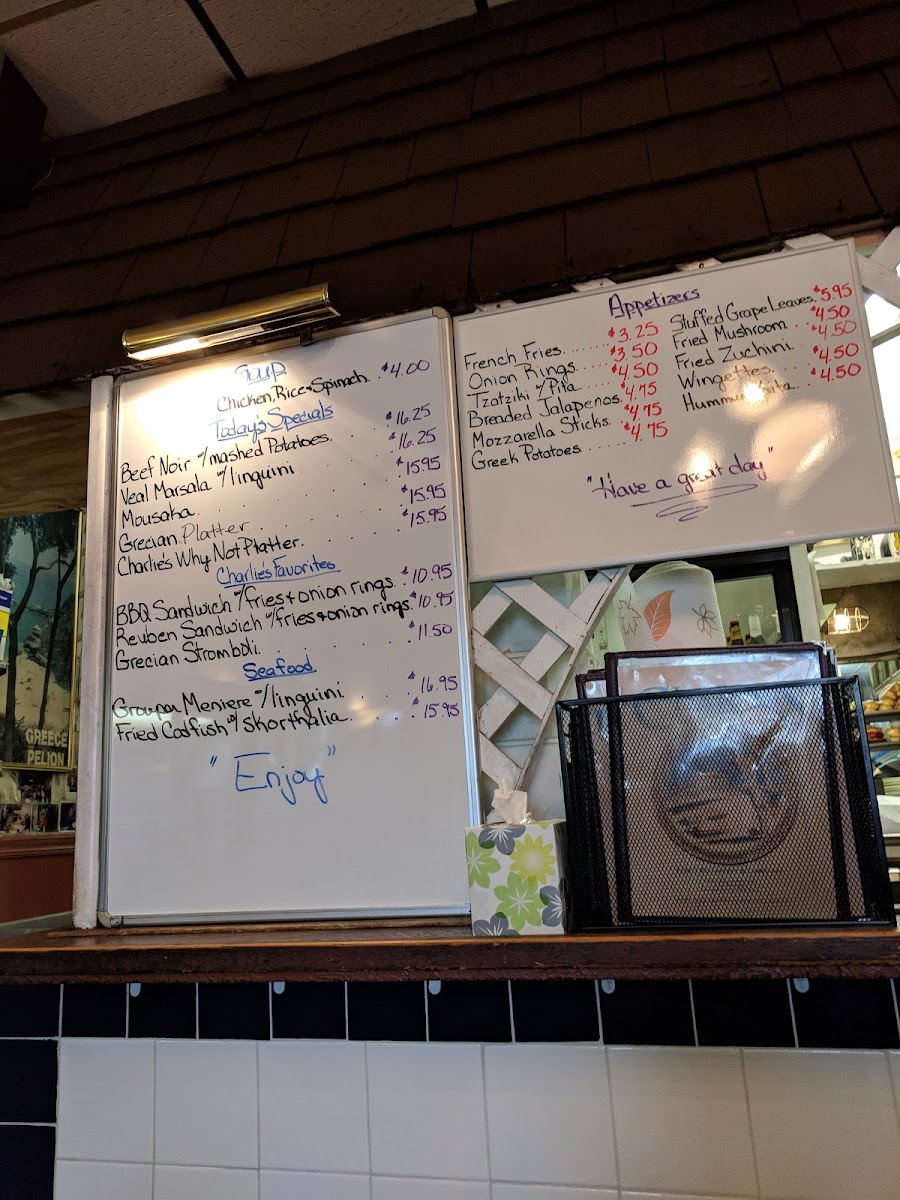 Soup
Chicken, Rice + Spinach. $4.00
Today's Specials
Beef Noir w/mashed Potatoes. $16.25
Veal Marsala w/linguini $16.25
Mousaka $15.95
Grecian Platter $15.95
Charlie's Why Not Platter. $15.95
Charlie's Favorites
BBQ Sandwich w/fries + onion rings. $10.95
Reuben Sandwich w/fries + onion rings. $10.95
Grecian Stromboli. $11.50
Seafood
Groupa Meniere w/linguini $16.95
Fried Codfish w/ skorthalia $15.95
"Enjoy"
Appetizers
French Fries $3.25
Onion Rings $3.50
Tzatziki w/Pita $4.50
Breaded Jalapenos. $4.75
Mozzarella Sticks. $4.75
Greek Potatoes $4.75
Stuffed Grape Leaves. $5.95
Fried Mushroom $4.50
Fried Zuchini. $4.50
Wingettes. $4.50
Hummus $4.50
"Have a great day"
GREECE
PELION